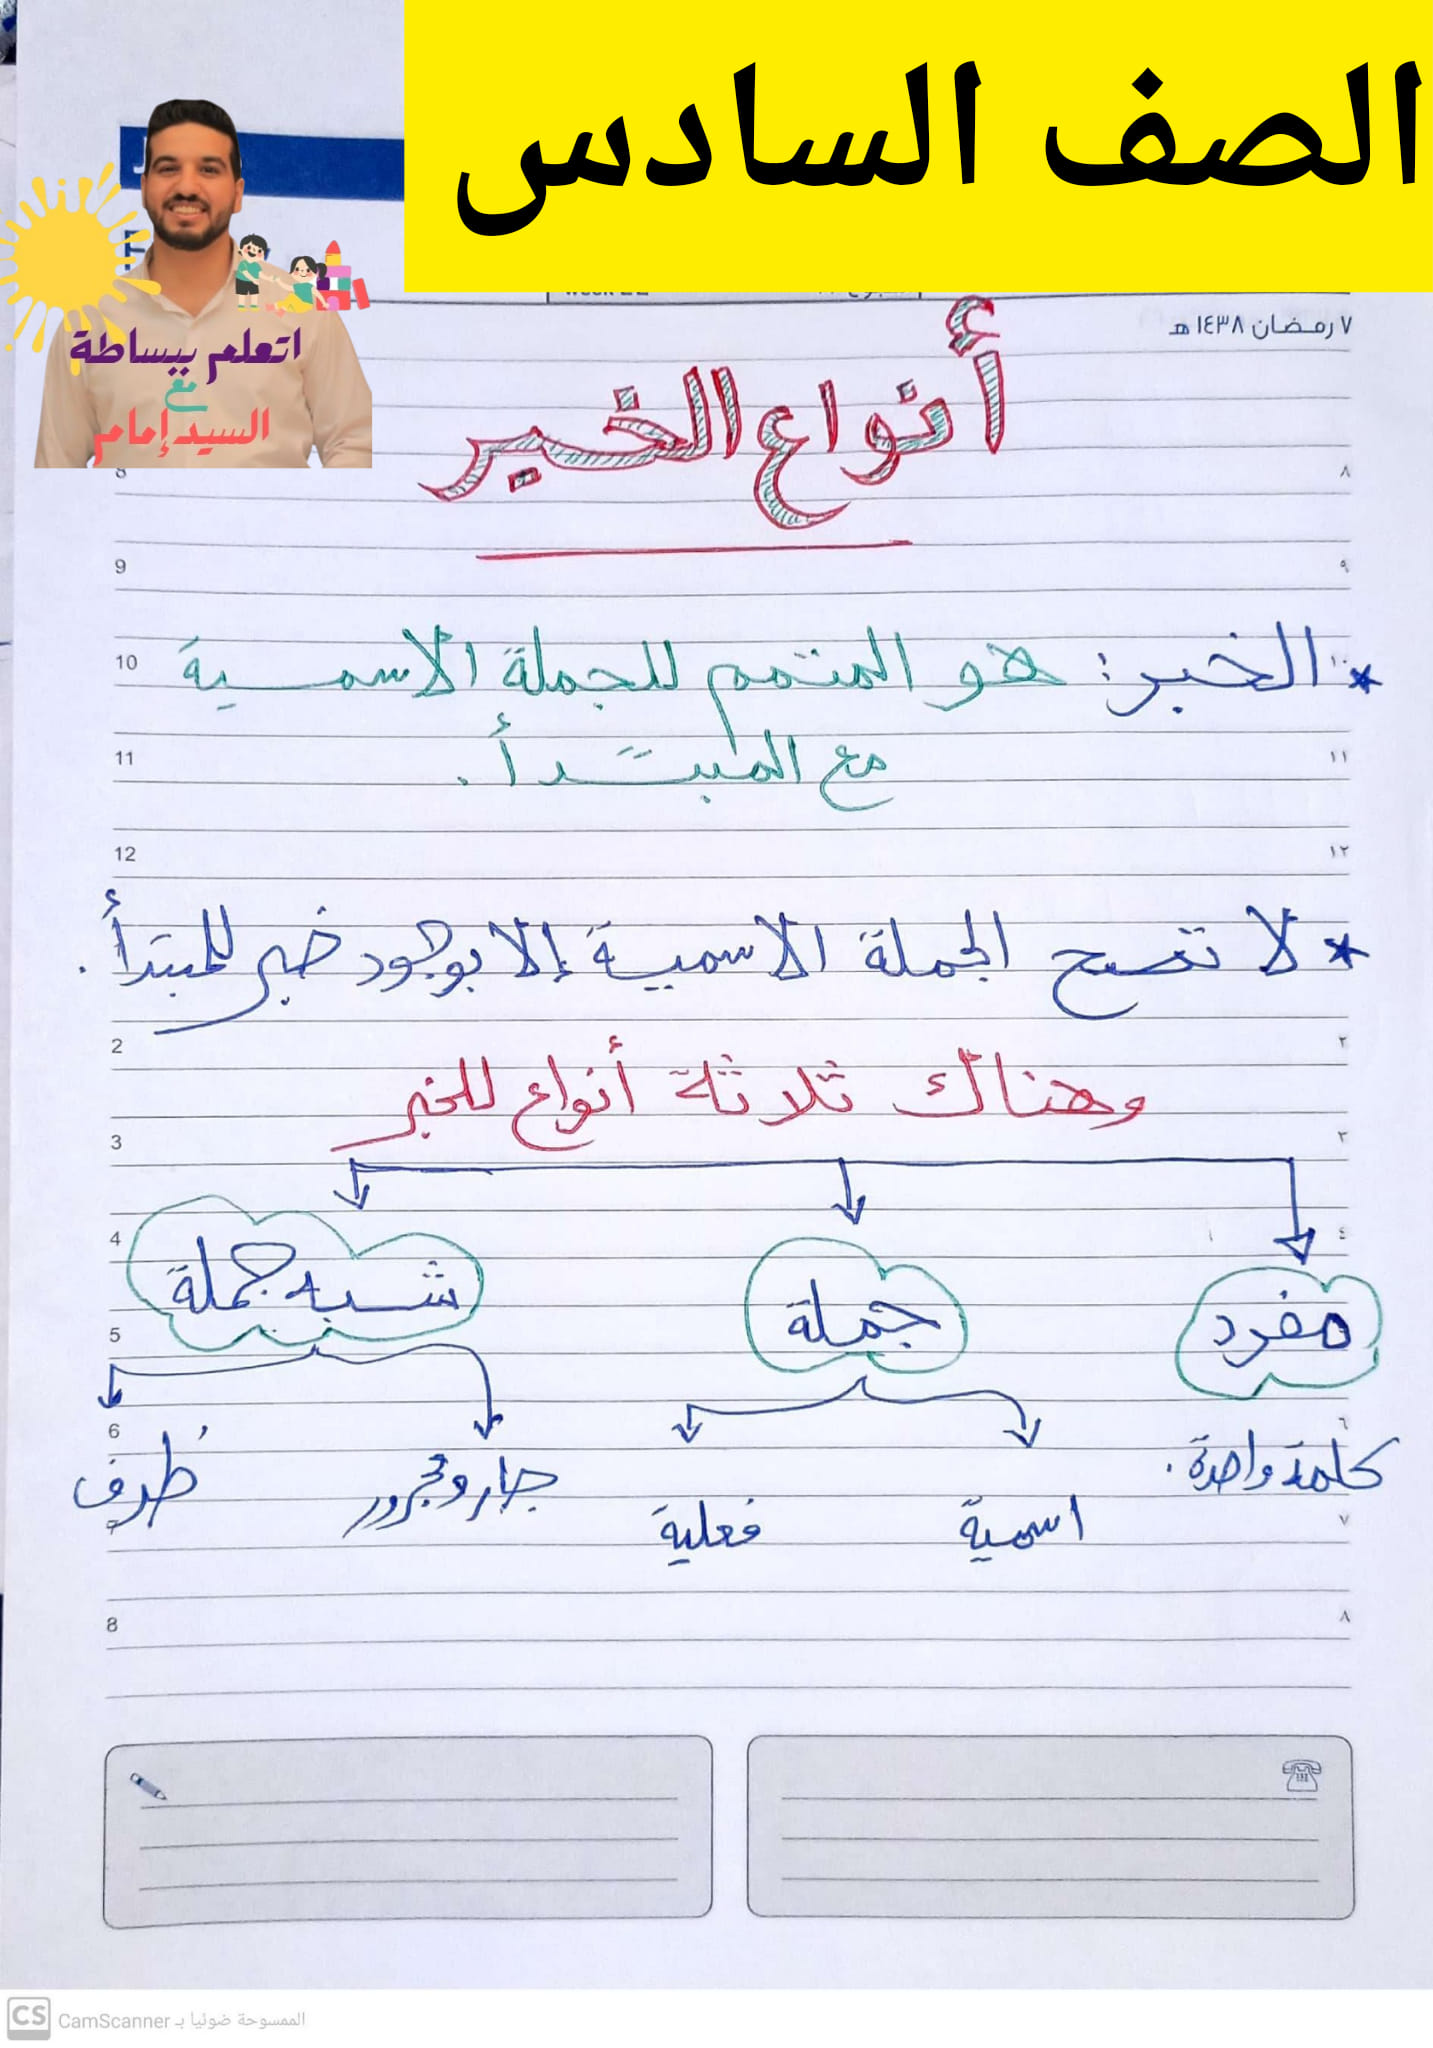 الصف السادس
اتعلم ببساطة
مع
السيد إمام
٧ رمضان ١٤٣٨ هـ
أنواع الخبر
8 ٨
9 ٩
* الخبر: هو المتمم للجملة الاسمية
10
مع المبتدأ.
11 ١١
12 ١٢
* لا تصح الجملة الاسمية إلا بوجود خبر للمبتدأ.
2 ٢
وهناك ثلاثة أنواع للخبر
3 ٣
4 ٤
مفرد جملة شبه جملة
5
6 ٦
كلمة واحدة. اسمية فعلية جار ومجرور ظرف
٧
8 ٨
CS CamScanner الممسوحة ضوئيا بـ